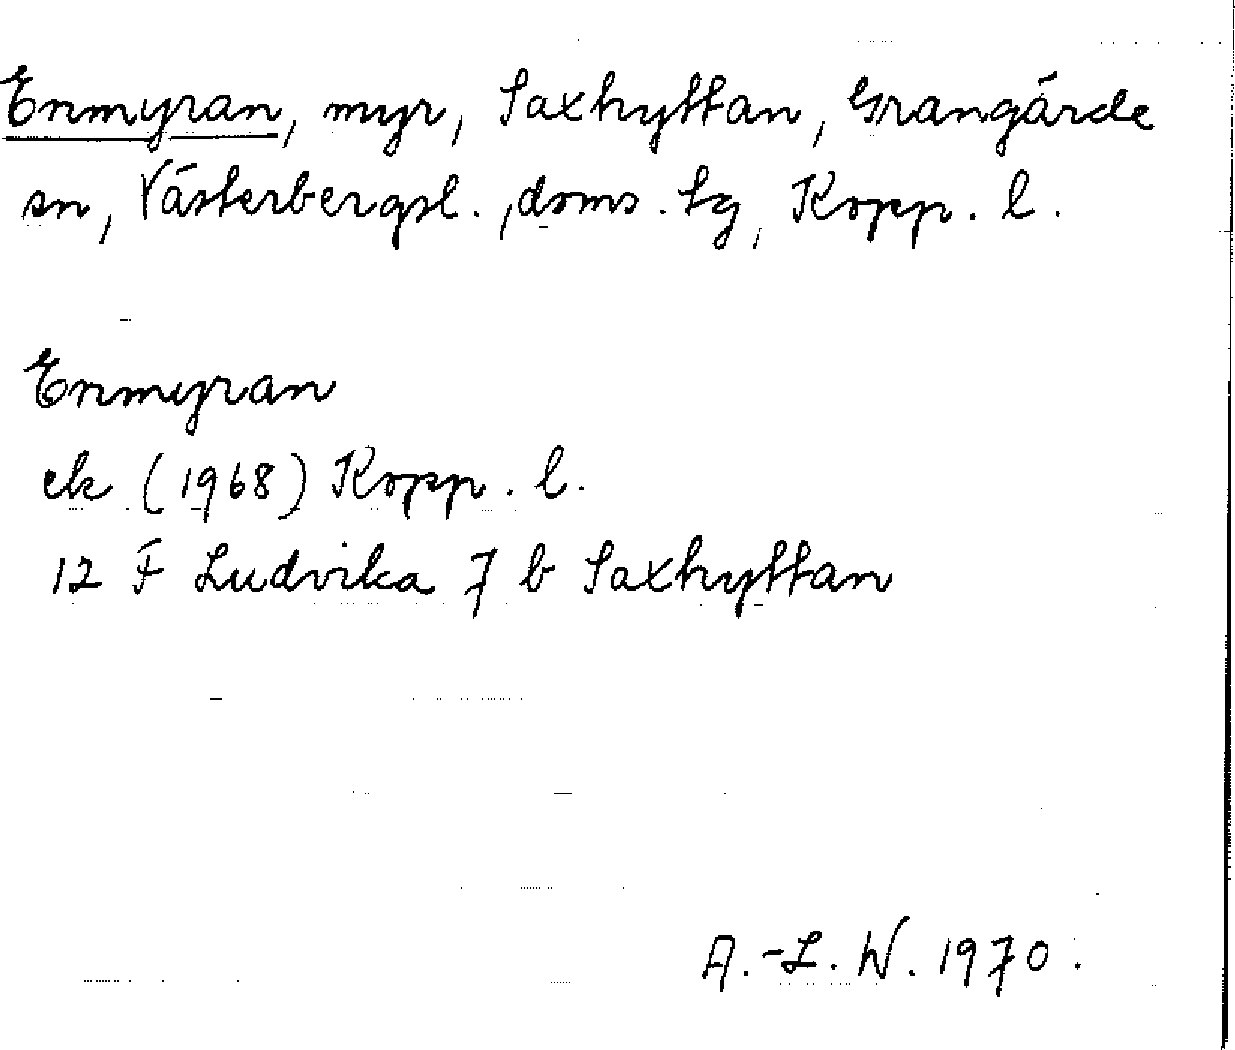 Enmyran, myr, Saxhyttan, Grangärde
sn, Västerbergsl., doms. tg, Kopp. l.
Enmyran
ek (1968) Kopp. l.
12 F Ludvika 7 b Saxhyttan
A.-L. W. 1970.